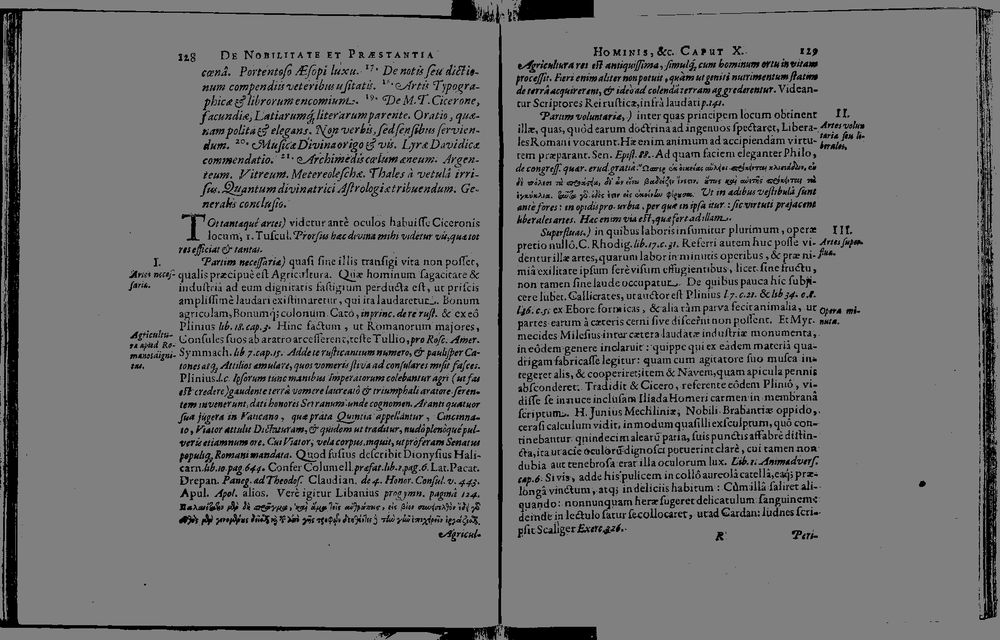 128 DE NOBILITATE ET PRÆSTANTIA
cœnâ. Portentoso Æsopi luxu. 17. De notis seu dictio-
num compendiis veteribus usitatis. 18. Artis Typogra-
phicæ & librorum encomium. 19. De M. T. Cicerone,
facundiæ, Latiarumq; literarum parente. Oratio, quæ-
nam polita & elegans. Non verbis, sed sensibus servien-
dum. 20. Musicæ Divina origo & vis. Lyræ Davidicæ
commendatio. 21. Archimedis cœlum æneum. Argen-
teum. Vitreum. Metereoleschæ. Thales à vetulâ irri-
sus. Quantum divinatrici Astrologiæ tribuendum. Ge-
neralis conclusio.
TOt tantaque artes) videtur antè oculos habuisse Ciceronis
locum, 1. Tuscul. Prorsus hæc divina mihi videtur vis, quæ tot
res efficiat & tantas.
I.
Partim necessariæ) quasi sine illis transigi vita non posset,
Artes neces-
sariæ.
qualis præcipuè est Agricultura. Quæ hominum sagacitate &
industriâ ad eum dignitatis fastigium perducta est, ut priscis
amplissimè laudari existimaretur, qui ita laudaretur. Bonum
agricolam, Bonumq; colonum. Cato, in princ. de re rust. & ex eô
Plinius lib. 18. cap. 3. Hinc factum, ut Romanorum majores,
Agricultu-
ra apud Ro-
manos digni-
tas.
Consules suos ab aratro arcesserent, teste Tullio, pro Rosc. Amer.
Symmach. lib 7. cap. 15. Adde te rusticantium numero, & paulisper Ca-
tones atq; Attilios æmulare, quos vomeris stiva ad consulares misit fasces.
Plinius l. c. Ipsorum tunc manibus Imperatorum colebantur agri (ut fas
est credere) gaudente terrâ vomere laureatô & triumphali aratore. Seren-
tem invenerunt, dati honores Serranum: unde cognomen. Aranti quatuor
sua jugera in Vaticano, quæ prata Quintia appellantur, Cincinna-
to, Viator attulit Dictaturam, & quidem ut traditur, nudô plenôque pul-
veris etiamnum ore. Cui Viator, vela corpus, inquit, ut proferam Senatus
populiq; Romani mandata. Quod fusius describit Dionysius Hali-
carn. lib. 10. pag 649. Confer Columell. præfat. lib. 1. pag. 6. Lat. Pacat.
Drepan. Paneg. ad Theodos. Claudian. de 4. Honor. Consul. v. 443.
Apul. Apol. alios. Verè igitur Libanius progymn. paginâ 124.
Agricul-
HOMINIS, &c. CAPUT X. 129
Agricultura res est antiquissima, simulq; cum hominum ortu in vitam
processit. Fieri enim aliter non potuit, quàm ut geniti nutrimentum statim
de terrâ acquirerent, & ideo ad colendâ terram aggrederentur. Videan-
tur Scriptores Rei rusticæ, infrà laudati p. 141.
Partim voluntariæ,) inter quas principem locum obtinent
II.
illæ, quas, quòd earum doctrina ad ingenuos spectaret, Libera-
Artes volun
tariæ seu li-
berales.
les Romani vocarunt. Hæ enim animum ad accipiendam virtu-
tem præparant. Sen. Epist. 88. Ad quam faciem eleganter Philo,
de congress. quær. erud. gratiâ:
Ut in ædibus vestibula sunt
ante fores: in opidis pro. urbia, per quæ in ipsa itur: sic virtuti præjacent
liberales artes. Hæc enim via est, quæ fert ad illam.
Superfluas.) in quibus labor insumitur plurimum, operæ
III.
pretio nullô. C. Rhodig. lib. 17. c. 31. Referri autem huc posse vi-
Artes super-
fluæ.
dentur illæ artes, quarum labor in minutis operibus, & præ ni-
miâ exilitate ipsum ferè visum effugientibus, licet sine fructu,
non tamen sine laude occupatur. De quibus pauca hic subji-
cere lubet. Callicrates, ut auctor est Plinius l. 7. c. 21. & lib 34. c. 8.
l. 36. c. 5. ex Ebore formicas, & alia tàm parva fecit animalia, ut
Opera mi-
nuta.
partes earum à cæteris cerni sive discerni non possent. Et Myr-
mecides Milesius inter cætera laudatæ industriæ monumenta,
in eôdem genere inclaruit: quippe qui ex eâdem materiâ qua-
drigam fabricasse legitur: quam cum agitatore suo musca in-
tegeret alis, & cooperiret; item & Navem, quam apicula pennis
absconderet. Tradidit & Cicero, referente eôdem Pliniô, vi-
disse se in nuce inclusam Iliada Homeri carmen in membranâ
scriptum. H. Junius Mechliniæ, Nobili Brabantiæ oppido,
cerasi calculum vidit, in modum quasilli exsculptum, quô con-
tinebantur quindecim alearũ paria, suis punctis affabrè distin-
cta, ita ut acie oculorũ dignosci potuerint clarè, cui tamen non
dubia aut tenebrosa erat illa oculorum lux. Lib. 2. Animadvers.
cap. 6. Si vis, adde his pulicem in collô aureolâ catellâ, eaq; præ-
longâ vinctum, atq; in deliciis habitum: Cùm illâ saliret ali-
quando: nonnunquam heræ sugeret delicatulum sanguinem:
deinde in lectulo satur se collocaret, ut ad Cardan: ludnes scri-
psit Scaliger Exerc. 326.
R Peri-